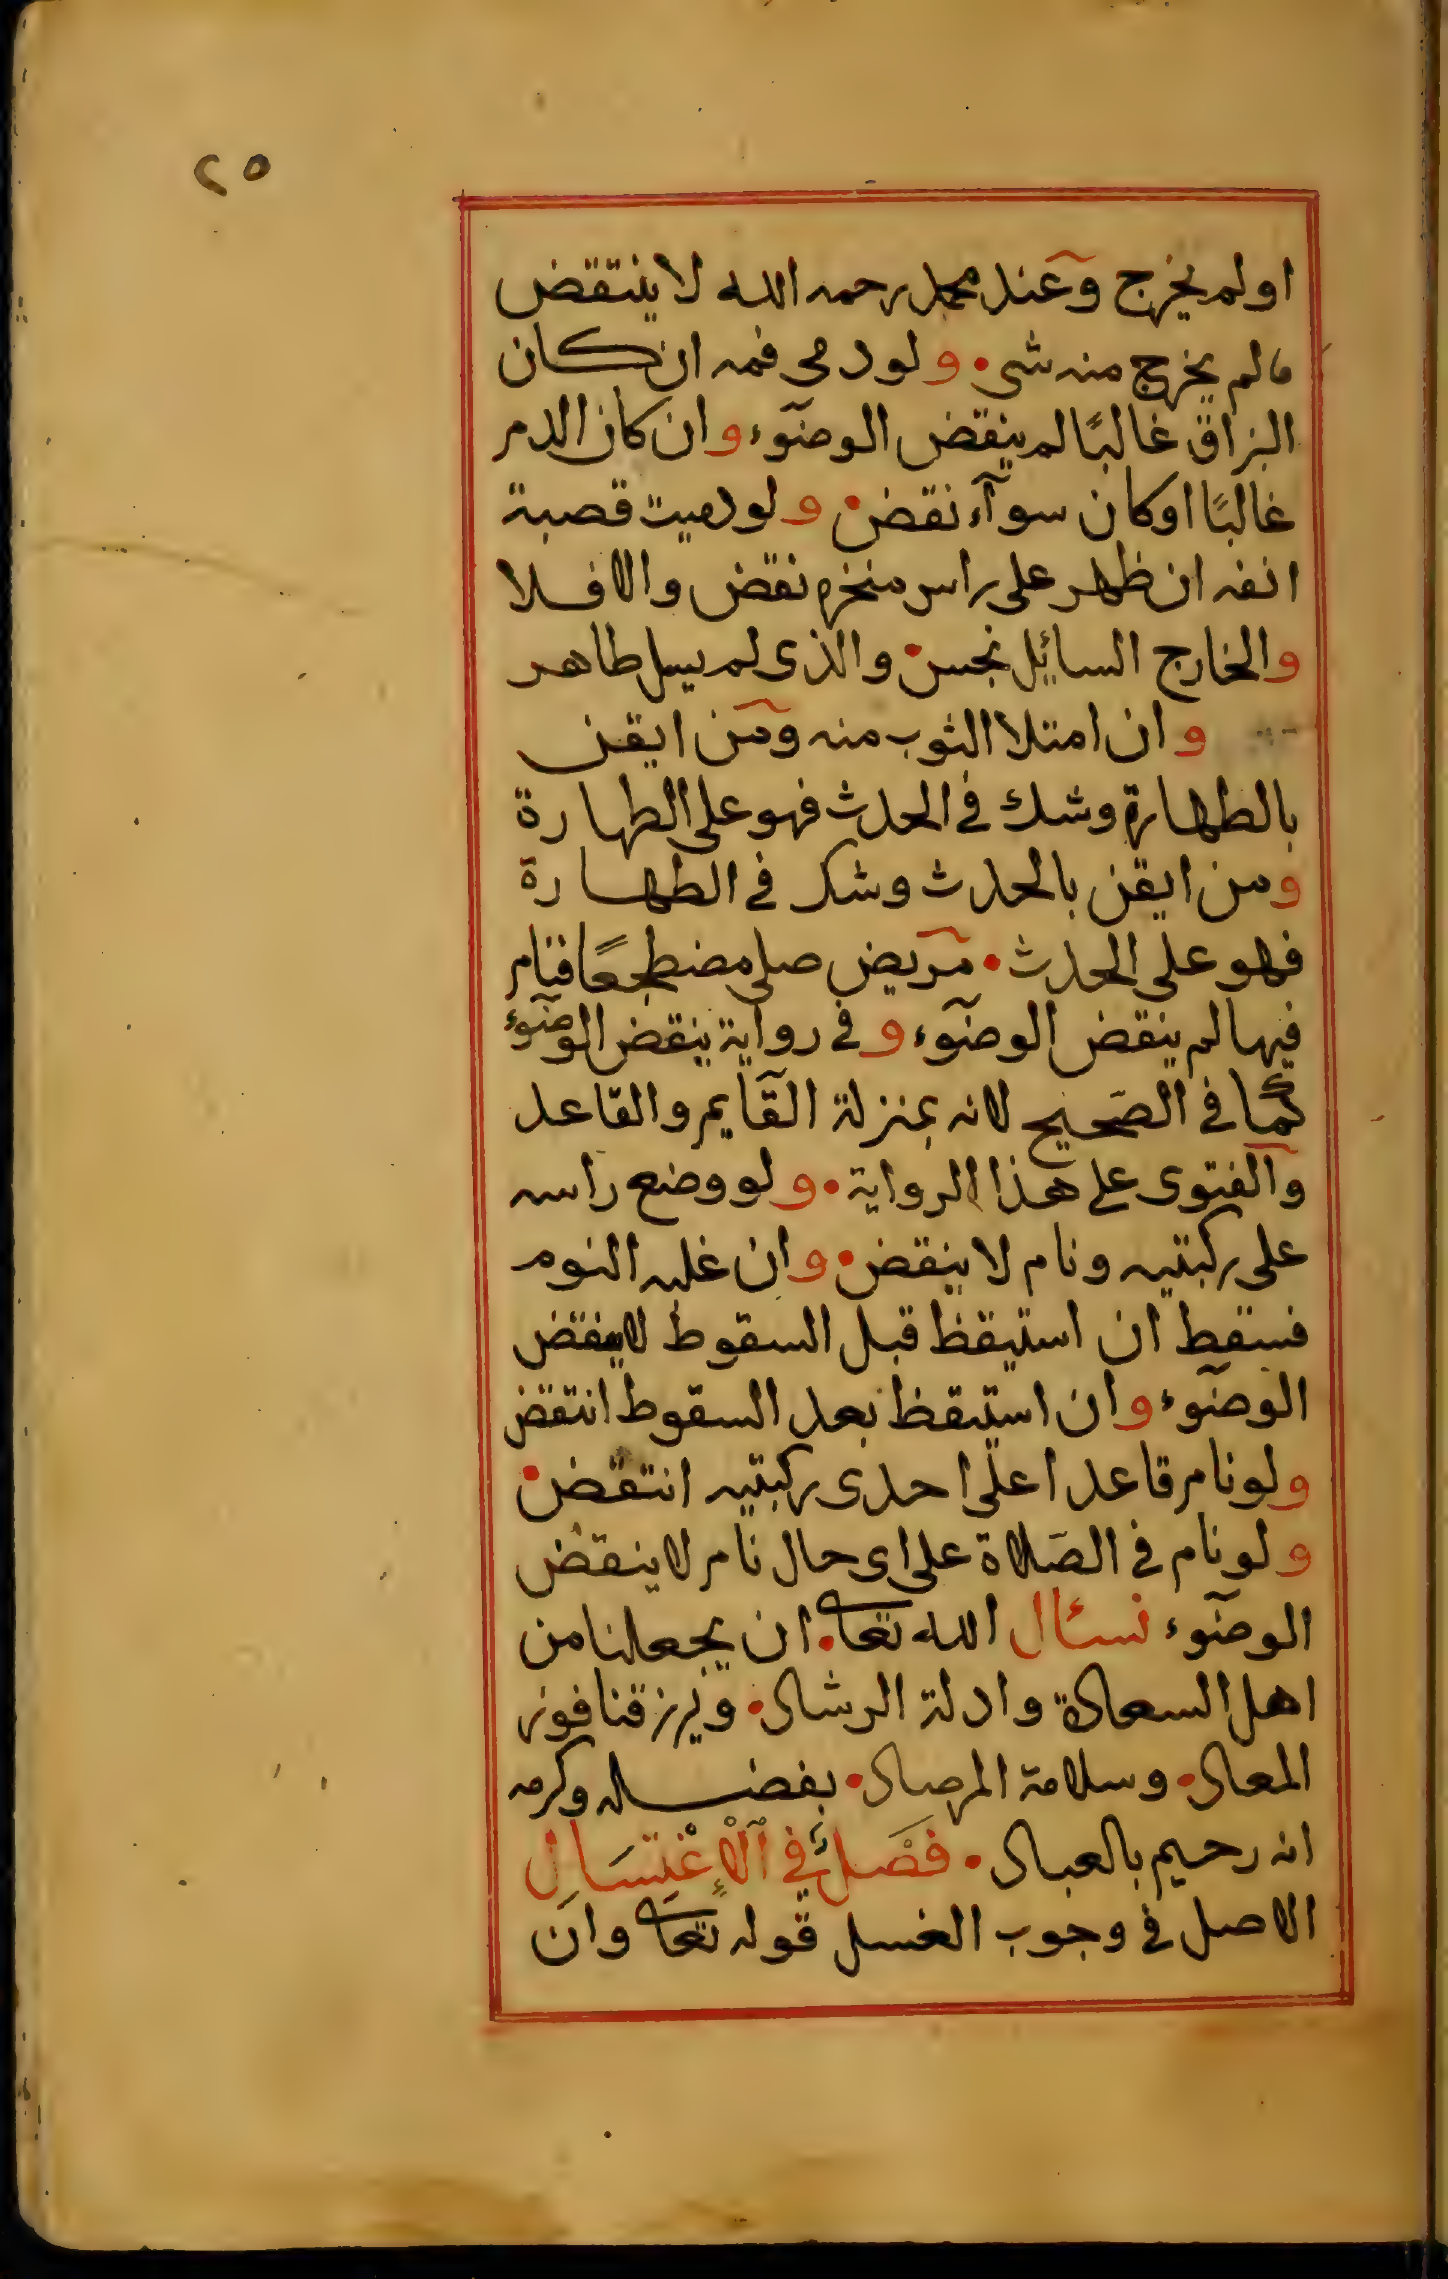 ٢٥
او لم يخرج وعند محمد رحمه الله لا ينتقض
مالم يخرج منه شى • ولو دمى فمه ان كان
البزاق غالبًا لم ينقض الوضوء وان كان الدم
غالبًا او كان سوآء نقض • ولو دميت قصبة
انفه ان ظهر على راس منخره نقض والا فلا
والخارج السائل نجس • والذى لم يسل طاهر
وان امتلا الثوب منه ومن ايقن
بالطهارة وشك فى الحدث فهو على الطهارة
ومن ايقن بالحدث وشك فى الطهارة
فهو على الحدث • مريض صلى مضطجعًا فنام
فيها لم ينقض الوضوء وفى رواية ينقض الوضوء
كما فى الصحيح لانه بمنزلة القايم والقاعد
والفتوى على هذا الرواية • ولو وضع راسه
على ركبتيه ونام لا ينقض • وان غلبه النوم
فسقط ان استيقظ قبل السقوط لا ينقض
الوضوء وان استيقظ بعد السقوط انتقض
ولو نام قاعدا على احدى ركبتيه انتقض •
ولو نام فى الصلاة على اى حال نام لا ينقض
الوضوء نسئال الله تعالى • ان يجعلنا من
اهل السعادة وادلة الرشاد • ويرزقنا فوز
المعاد • وسلامة المرصاد • بفضله وكرمه
انه رحيم بالعباد • فَصْلٌ فِي ٱلْإِغْتِسَالِ
الاصل فى وجوب الغسل قوله تعالى وان